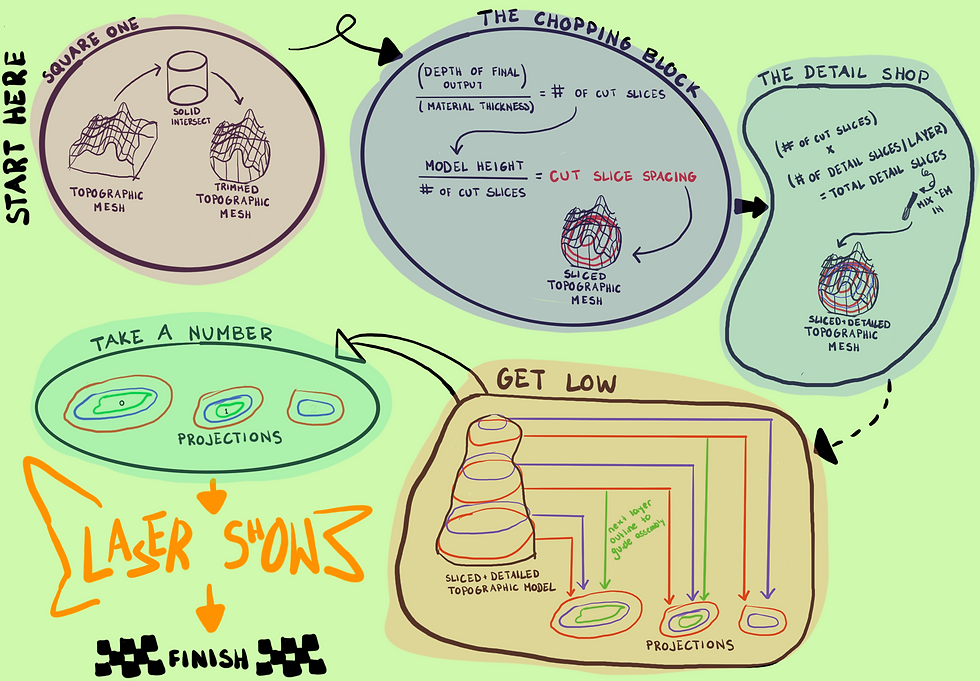 START HERE
SQUARE ONE
SOLID
INTERSECT
TOPOGRAPHIC
MESH
TRIMMED
TOPOGRAPHIC
MESH
THE CHOPPING BLOCK
(DEPTH OF FINAL
OUTPUT)
(MATERIAL THICKNESS)
= # OF CUT SLICES
MODEL HEIGHT
# OF CUT SLICES
= CUT SLICE SPACING
SLICED
TOPOGRAPHIC
MESH
THE DETAIL SHOP
(# OF CUT SLICES)
x
(# OF DETAIL SLICES/LAYER)
= TOTAL DETAIL SLICES
MIX 'EM
IN
SLICED+DETAILED
TOPOGRAPHIC
MESH
GET LOW
next layer
outline to
guide assembly
SLICED + DETAILED
TOPOGRAPHIC MODEL
PROJECTIONS
TAKE A NUMBER
0
1
PROJECTIONS
LASER SHOW
FINISH